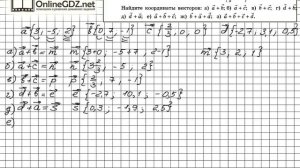 OnlineGDZ.net
Найдите координаты векторов: а) a⃗ + b⃗; б) a⃗ + c⃗; в) b⃗ + c⃗;
г) d⃗ + b⃗; д) d⃗ + a⃗;
a⃗{3; -5; 2} b⃗{0; 7; -1} c⃗{2/3; 0; 0} d⃗{-2,7; 3,1; 0,5}
а) a⃗+b⃗=m⃗ m⃗{3+0; -5+7; 2-1} m⃗{3; 2; 1}
б) a⃗+c⃗=n⃗ n⃗{3 2/3; -5; 2}
в) b⃗+c⃗=p⃗ p⃗{2/3; 7; -1}
г) d⃗+b⃗=e⃗ e⃗{-2,7; 10,1; -0,5}
д) d⃗+a⃗=s⃗ s⃗{0,3; -1,9; 2,5}
е)